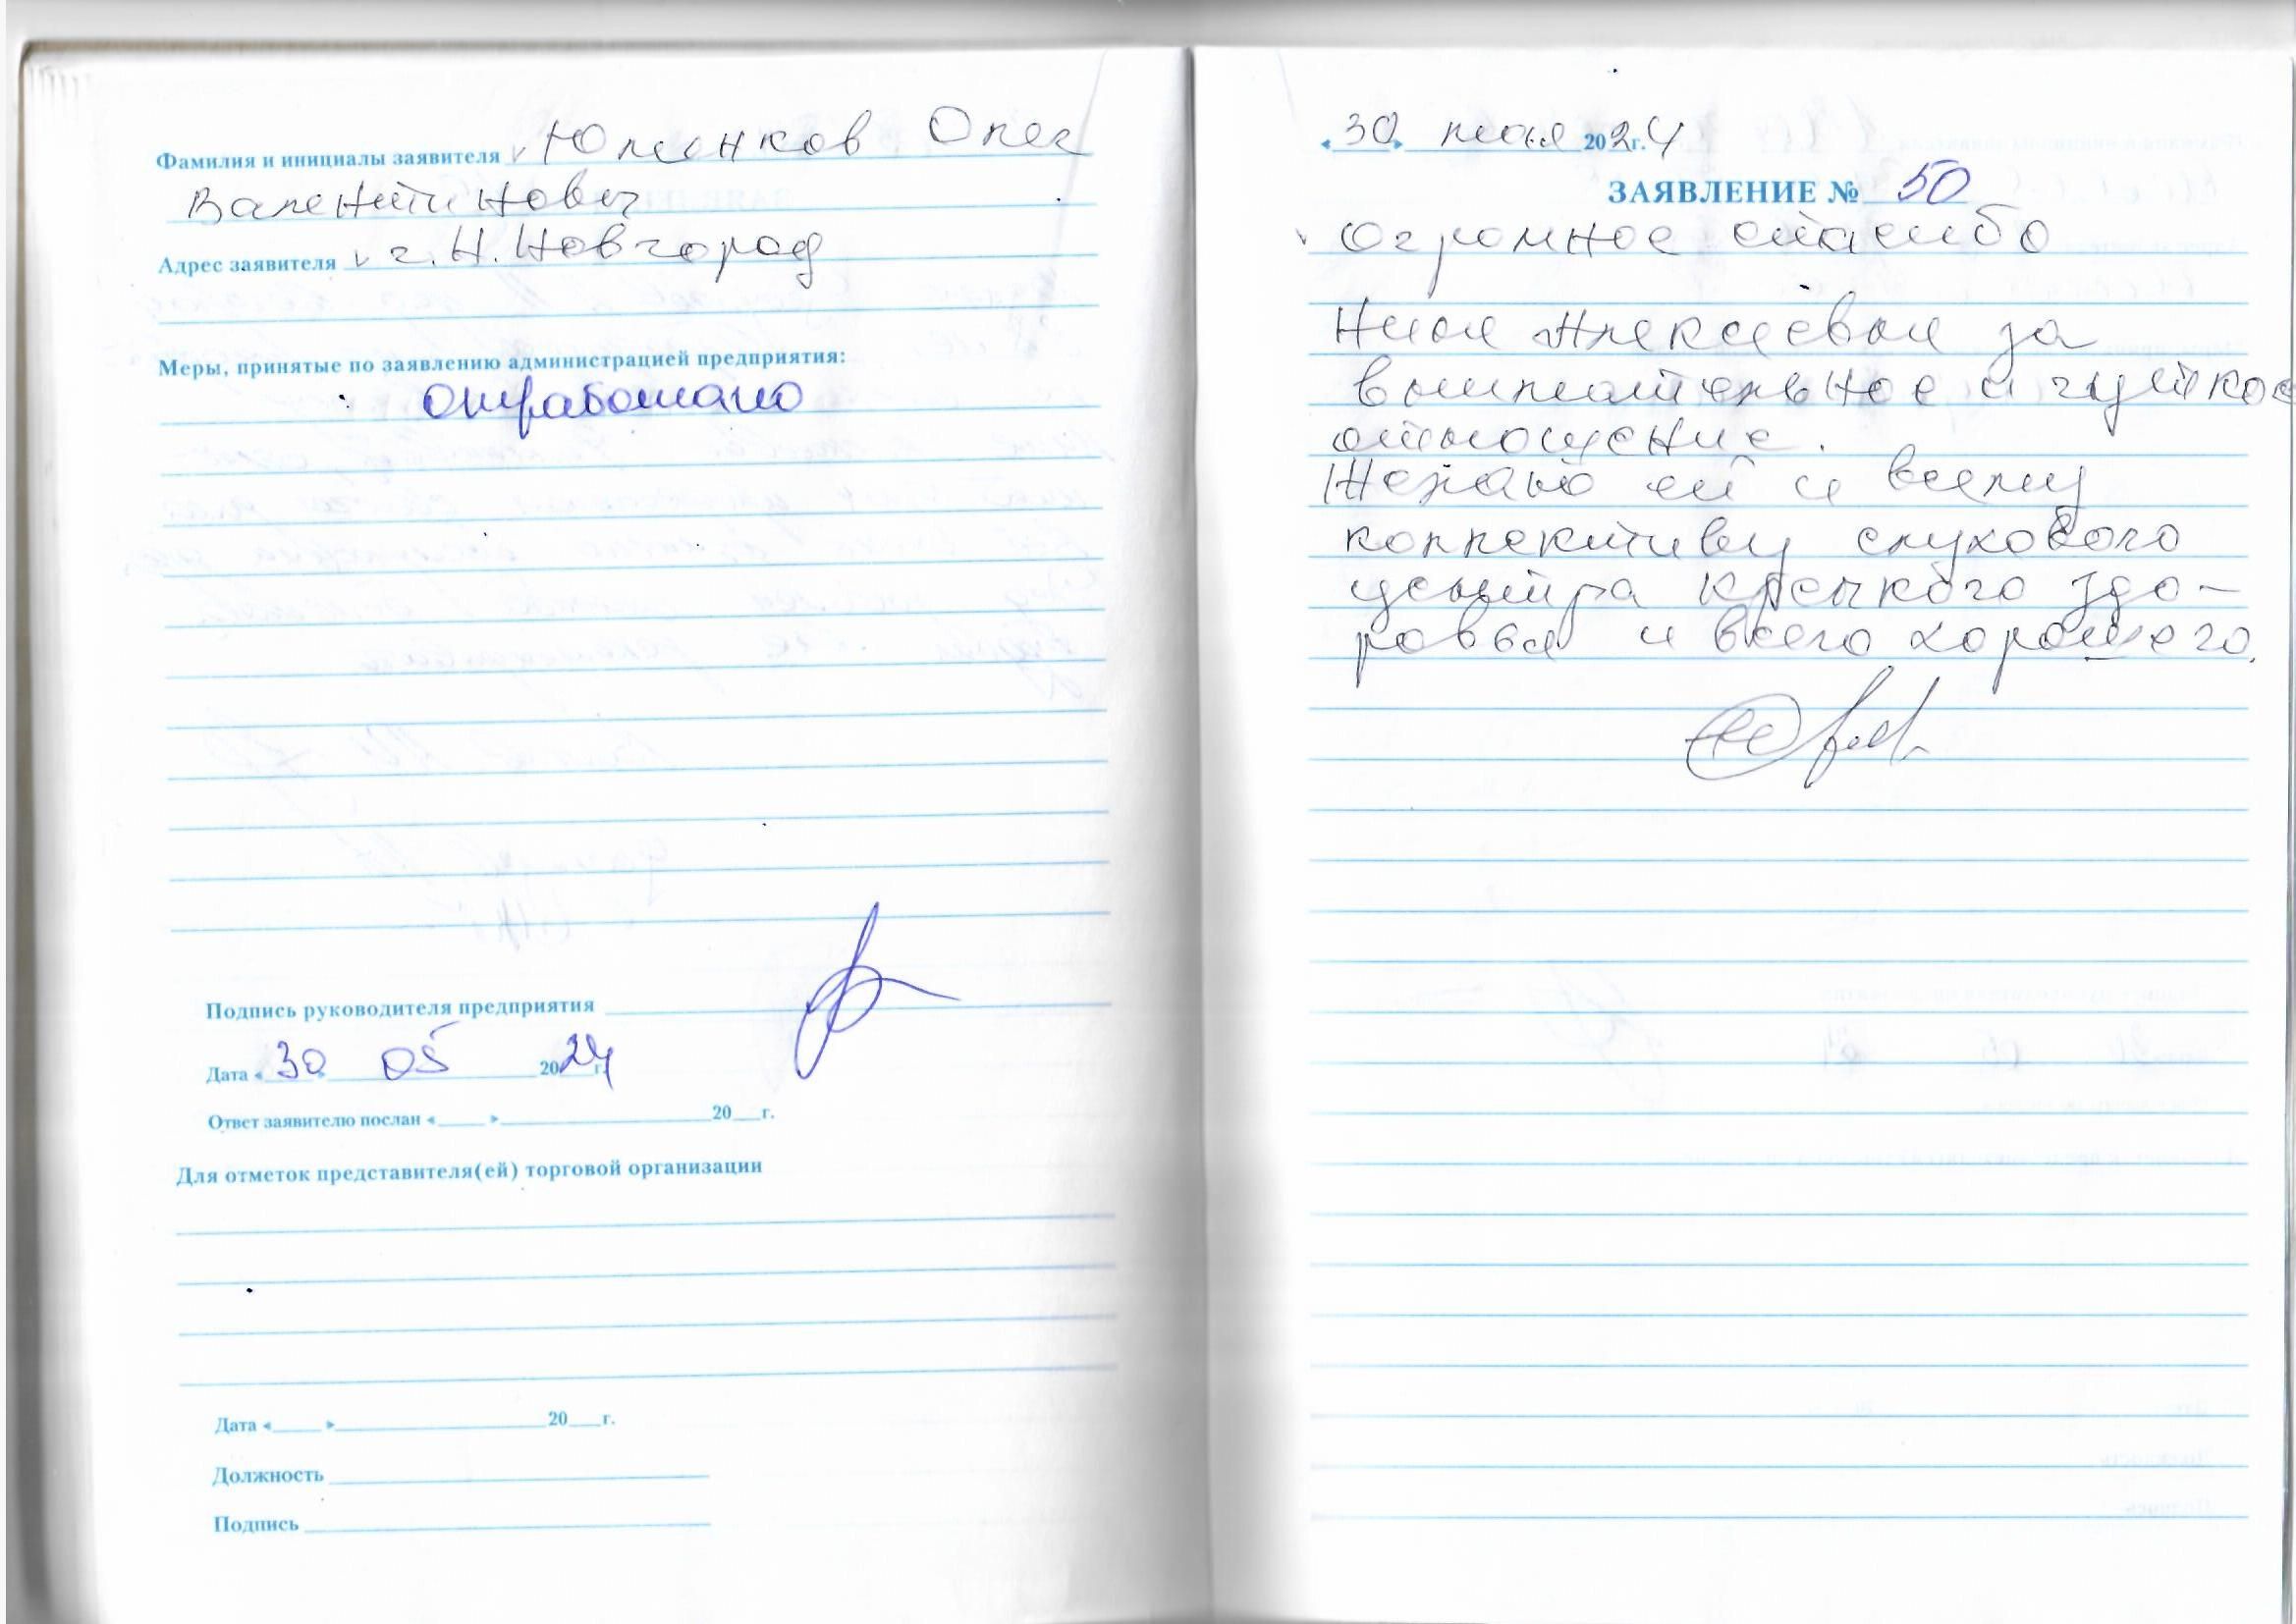 Фамилия и инициалы заявителя Юленков Олег
Валентинович
Адрес заявителя г. Н. Новгород
Меры, принятые по заявлению администрацией предприятия:
отработано
Подпись руководителя предприятия
Дата « 30 » 05 2024 г.
Ответ заявителю послан «____» ____ 20__г.
Для отметок представителя(ей) торговой организации
Дата «____» ____ 20__г.
Должность
Подпись
«30» мая 2024 г.
ЗАЯВЛЕНИЕ № 50
Огромное спасибо
Нине Алексеевне за
внимательное и чуткое
отношение.
Желаю ей и всему
коллективу слухового
центра крепкого здо-
ровья и всего хорошего.